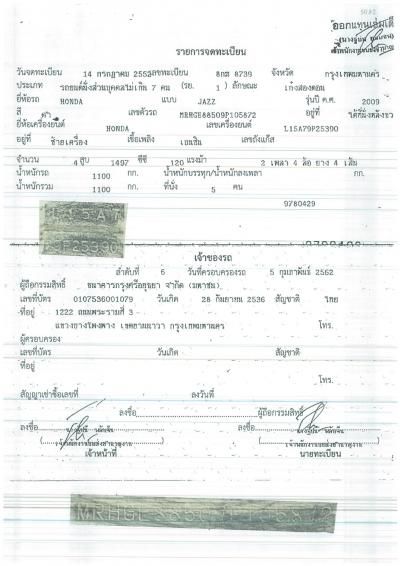 ออกแทนเล่มเดิ
รายการจดทะเบียน
วันจดทะเบียน 14 กรกฎาคม 2552 เลขทะเบียน 8กส 8739 จังหวัด กรุงเทพมหานคร
ประเภท รถยนต์นั่งส่วนบุคคลไม่เกิน 7 คน (รย. 1) ลักษณะ เก๋งสองตอน
ยี่ห้อรถ HONDA แบบ JAZZ รุ่นปี ค.ศ. 2009
สี ดำ เลขตัวรถ MRHGE88509P105872 อยู่ที่
ยี่ห้อเครื่องยนต์ HONDA เลขเครื่องยนต์ L15A79P25390
อยู่ที่ ซ้ายเครื่อง เชื้อเพลิง เบนซิน เลขถังแก๊ส
จำนวน 4 สูบ 1497 ซีซี 120 แรงม้า 2 เพลา 4 ล้อ ยาง 4 เส้น
น้ำหนักรถ 1100 กก. น้ำหนักบรรทุก/น้ำหนักลงเพลา กก.
น้ำหนักรวม 1100 กก. ที่นั่ง 5 คน
9780429
เจ้าของรถ
ลำดับที่ 6 วันที่ครอบครองรถ 5 กุมภาพันธ์ 2562
ผู้ถือกรรมสิทธิ์ ธนาคารกรุงศรีอยุธยา จำกัด (มหาชน)
เลขที่บัตร 0107536001079 วันเกิด 28 กันยายน 2536 สัญชาติ ไทย
ที่อยู่ 1222 ถนนพระรามที่ 3
แขวงบางโพงพาง เขตยานนาวา กรุงเทพมหานคร โทร.
ผู้ครอบครอง
เลขที่บัตร วันเกิด สัญชาติ
ที่อยู่
โทร.
สัญญาเช่าซื้อเลขที่ ลงวันที่
ลงชื่อ ผู้ถือกรรมสิทธิ์
ลงชื่อ ลงชื่อ
เจ้าหน้าที่ นายทะเบียน